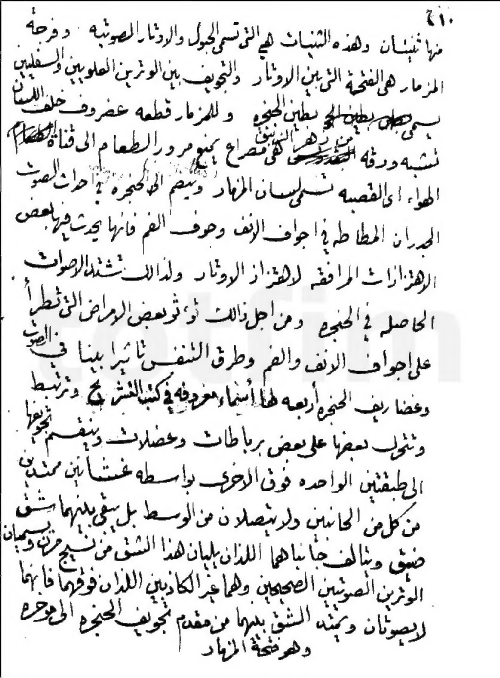 ٤١٠
منها ثنيتان وهذه الثنيات هي التي تسمى الحبول والاوتار الصوتيه وفرجة
المزمار هي الفتحة التي بين الاوتار والتجويف بين الوترين العلويين والسفليين
يسمى بطين الحنجره وللمزمار قطعه غضروف خلف اللسان
تشبه ورقه من زهر الزنبق هي مصراع يمنع مرور الطعام الى قناة
الهواء اي القصبه تسمى لسان المزمار وينضم الى الحنجره في احداث الصوت
الجدران المطاطه في اجواف الانف وجوف الفم فانها يحدث فيها بعض
الاهتزازات المرافقه لاهتزاز الاوتار ولذالك تشتد الاصوات
الحاصله في الحنجره ومن اجل ذالك تؤثر بعض الامراض التي تطرأ
على اجواف الانف والفم وطرق التنفس تاثيرا بينا في الصوت
وغضاريف الحنجره أربعه لها أسماء معروفه في كتب التشريح وترتبط
وتتحرك بعضها على بعض برباطات وعضلات وينقسم تجويفها
الى طبقتين الواحده فوق الاخرى بواسطه غشائين ممتدين
من كل من الجانبين ولا يتصلان من الوسط بل يبقى بينهما شق
ضيق ويتالف جانباهما اللذان يليان هذا الشق من نسيج مرن ويسميان
الوترين الصوتيين الصحيحين وهما غير الكاذبين اللذان فوقهما فانهما
لا يصوتان ويمتد الشق بينهما من مقدم تجويف الحنجره الى موخره
وهو فتحة المزمار
totfim